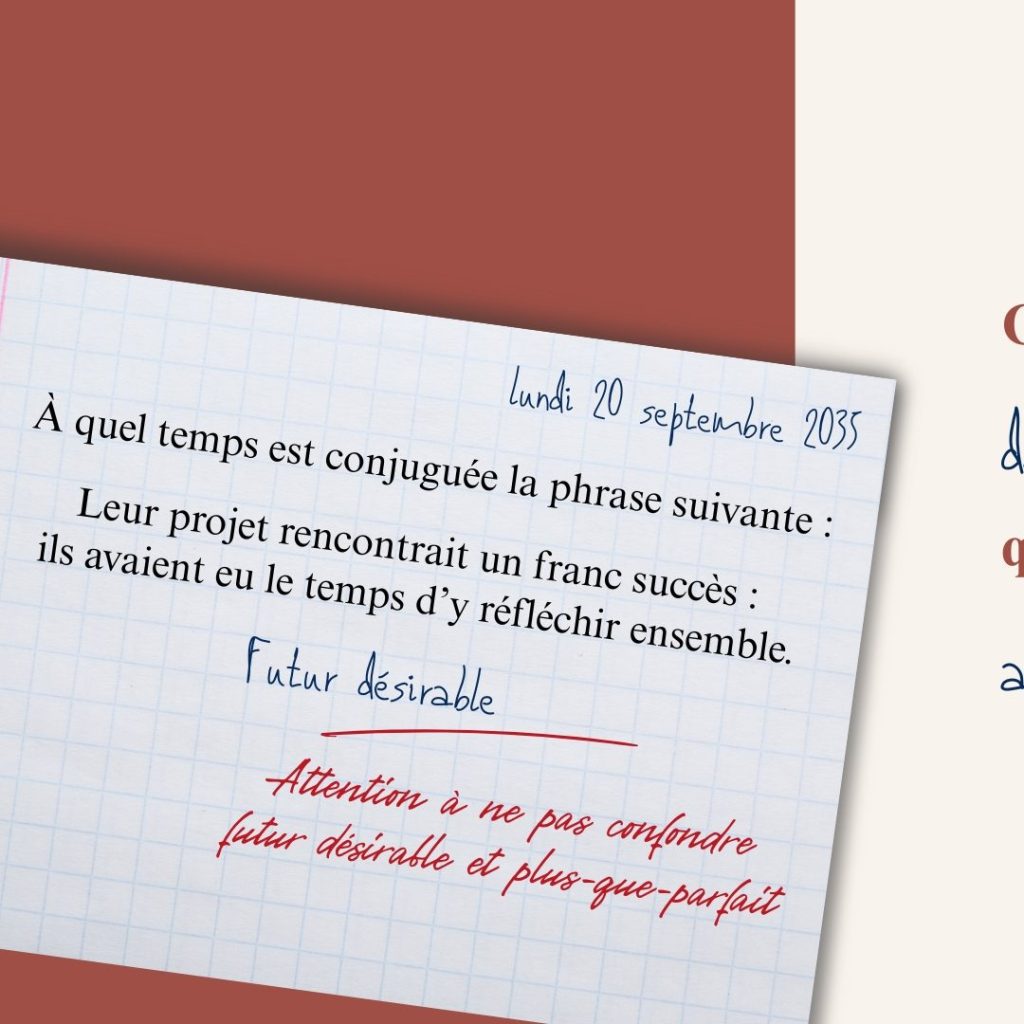 lundi 20 septembre 2035
À quel temps est conjuguée la phrase suivante :
Leur projet rencontrait un franc succès :
ils avaient eu le temps d’y réfléchir ensemble.
Futur désirable
Attention à ne pas confondre
futur désirable et plus-que-parfait